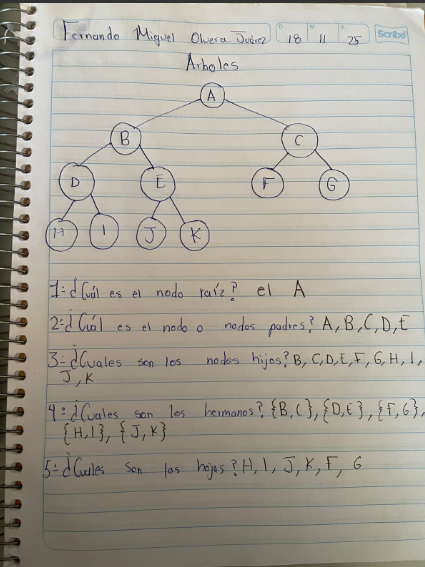 Fernando Miguel Olvera Juárez
D M A
18 11 25
Scribe
Arboles
A
B
C
D
E
F
G
H
I
J
K
1=¿Cuál es el nodo raíz? el A
2=¿Cuál es el nodo o nodos padres? A, B, C, D, E
3=¿Cuales son los nodos hijos? B, C, D, E, F, G, H, I,
J, K
4=¿Cuales son los hermanos? {B, C}, {D, E}, {F, G},
{H, I}, {J, K}
5=¿Cuales son las hojas? H, I, J, K, F, G